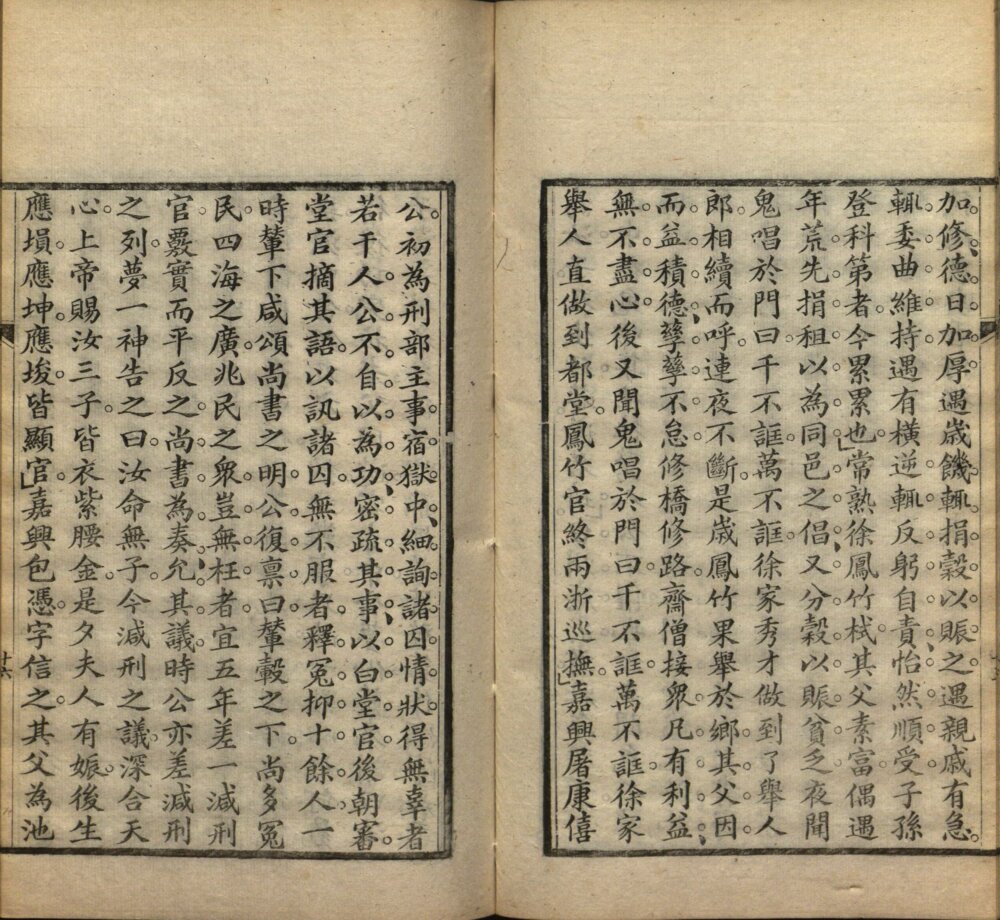 加修德日加厚遇歲饑輒捐穀以賑之遇親戚有急
輒委曲維持遇有橫逆輒反躬自責怡然順受子孫
登科第者今累累也常熟徐鳳竹栻其父素富偶遇
年荒先捐租以為同邑之倡又分穀以賑貧乏夜聞
鬼唱於門曰千不誆萬不誆徐家秀才做到了舉人
郎相續而呼連夜不斷是歲鳳竹果舉於鄉其父因
而益積德孳孳不怠修橋修路齋僧接衆凡有利益
無不盡心後又聞鬼唱於門曰千不誆萬不誆徐家
舉人直做到都堂鳳竹官終兩浙巡撫嘉興屠康僖
公初為刑部主事宿獄中細詢諸囚情狀得無辜者
若干人公不自以為功密疏其事以白堂官後朝審
堂官摘其語以訊諸囚無不服者釋冤抑十餘人一
時輦下咸頌尚書之明公復禀曰輦轂之下尚多冤
民四海之廣兆民之衆豈無枉者宜五年差一減刑
官覈實而平反之尚書為奏允其議時公亦差減刑
之列夢一神告之曰汝命無子今減刑之議深合天
心上帝賜汝三子皆衣紫腰金是夕夫人有娠後生
應塤應坤應埈皆顯官嘉興包憑字信之其父為池
十六